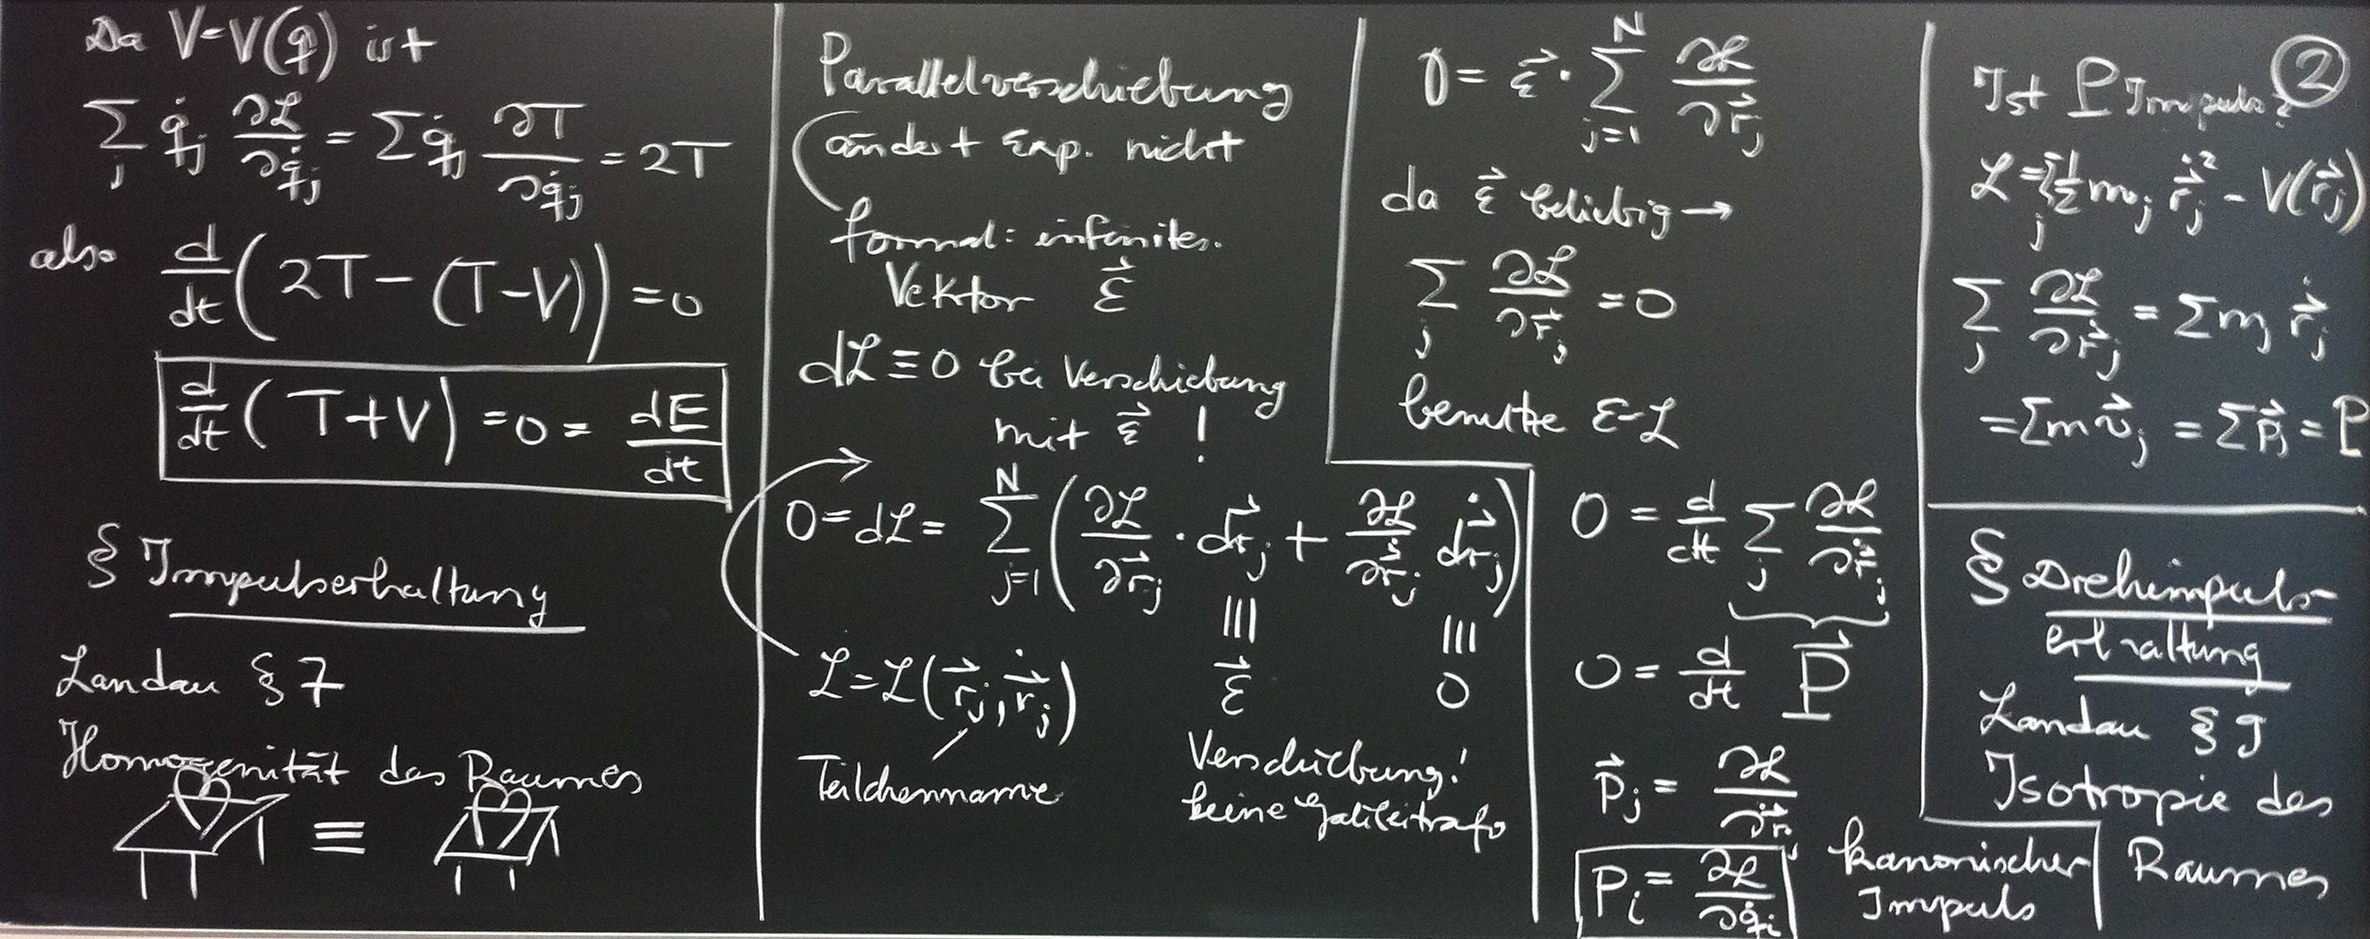 Da V=V(q) ist
∑_j q̇_j ∂ℒ/∂q̇_j = ∑ q̇_j ∂T/∂q̇_j = 2T
also d/dt (2T - (T-V)) = 0
d/dt (T+V) = 0 = dE/dt
§ Impulserhaltung
Landau § 7
Homogenität des Raumes
≡
Parallelverschiebung
ändert Exp. nicht
formal: infinites.
Vektor ε⃗
dℒ ≡ 0 bei Verschiebung
mit ε⃗ !
0 = dℒ = ∑_{j=1}^N (∂ℒ/∂r⃗_j · dr⃗_j + ∂ℒ/∂r⃗̇_j dr⃗̇_j)
≡ ≡
ε⃗ 0
ℒ = ℒ(r⃗_j, r⃗̇_j)
Teilchenname
Verschiebung!
keine Galileitrafo
0 = ε⃗ · ∑_{j=1}^N ∂ℒ/∂r⃗_j
da ε⃗ beliebig →
∑_j ∂ℒ/∂r⃗_j = 0
benutze E-L
0 = d/dt ∑_j ∂ℒ/∂r⃗̇_j
0 = d/dt P⃗
p⃗_j = ∂ℒ/∂r⃗̇_j
P_i = ∂ℒ/∂q̇_i
kanonischer
Impuls
②
Ist P Impuls?
ℒ = ∑_j ½ m_j r⃗̇_j² - V(r⃗_j)
∑_j ∂ℒ/∂r⃗̇_j = ∑ m_j r⃗̇_j
= ∑ m v⃗_j = ∑ p⃗_j = P
§ Drehimpuls-
erhaltung
Landau § 9
Isotropie des
Raumes